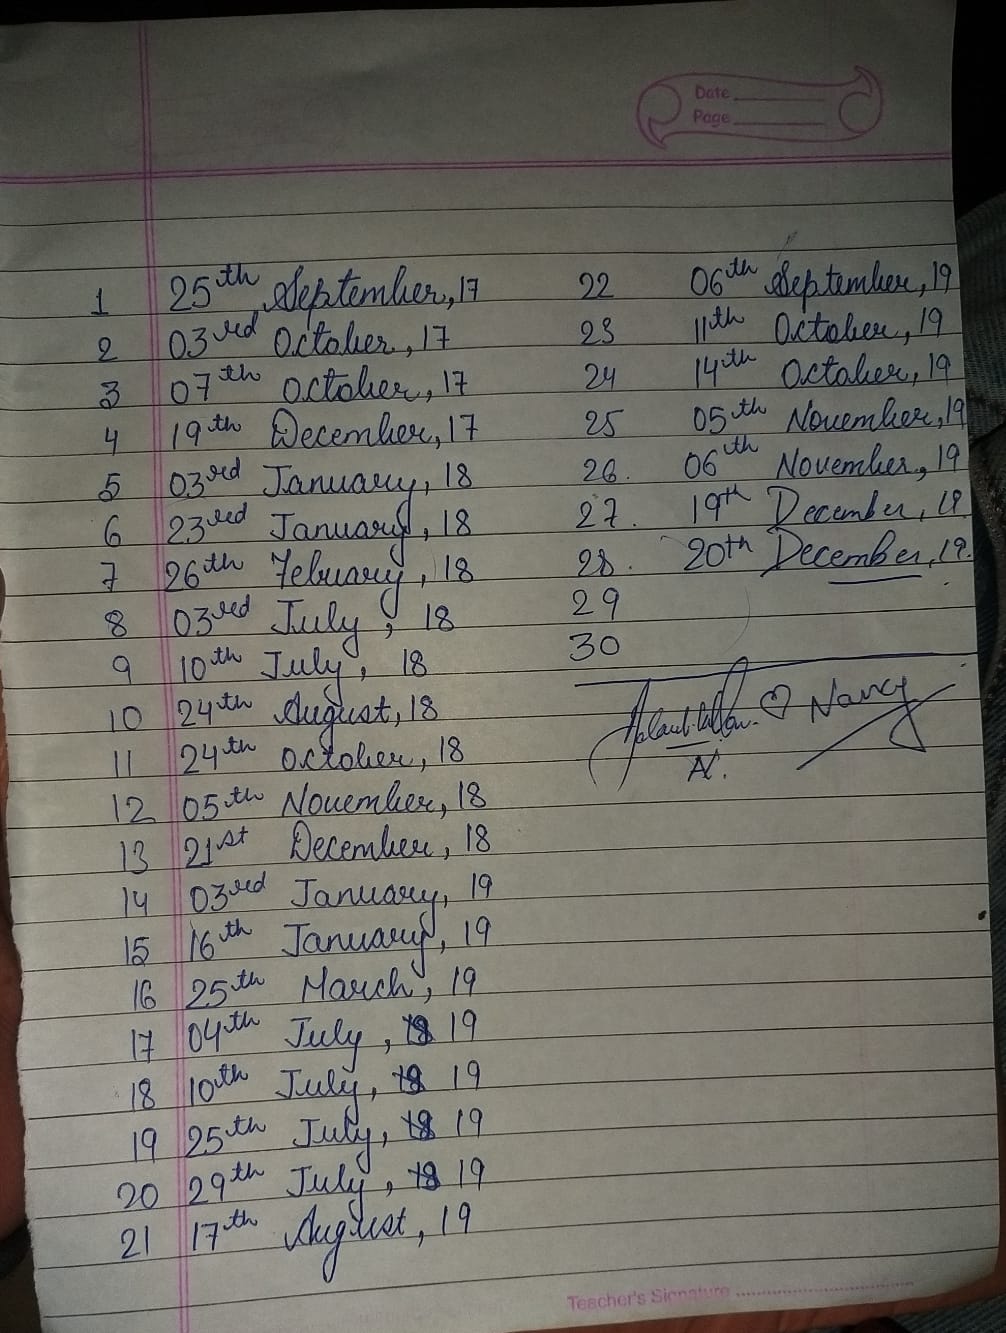 Date
Page
1 25th September, 17
2 03rd October, 17
3 07th October, 17
4 19th December, 17
5 03rd January, 18
6 23rd January, 18
7 26th Febuary, 18
8 03rd July, 18
9 10th July, 18
10 24th August, 18
11 24th October, 18
12 05th November, 18
13 21st December, 18
14 03rd January, 19
15 16th January, 19
16 25th March, 19
17 04th July, 18 19
18 10th July, 18 19
19 25th July, 18 19
20 29th July, 18 19
21 17th August, 19
22 06th September, 19
23 11th October, 19
24 14th October, 19
25 05th November, 19
26. 06th November, 19
27. 19th December, 19
28. 20th December, 19.
29
30
♡ Nancy
Teacher's Signature